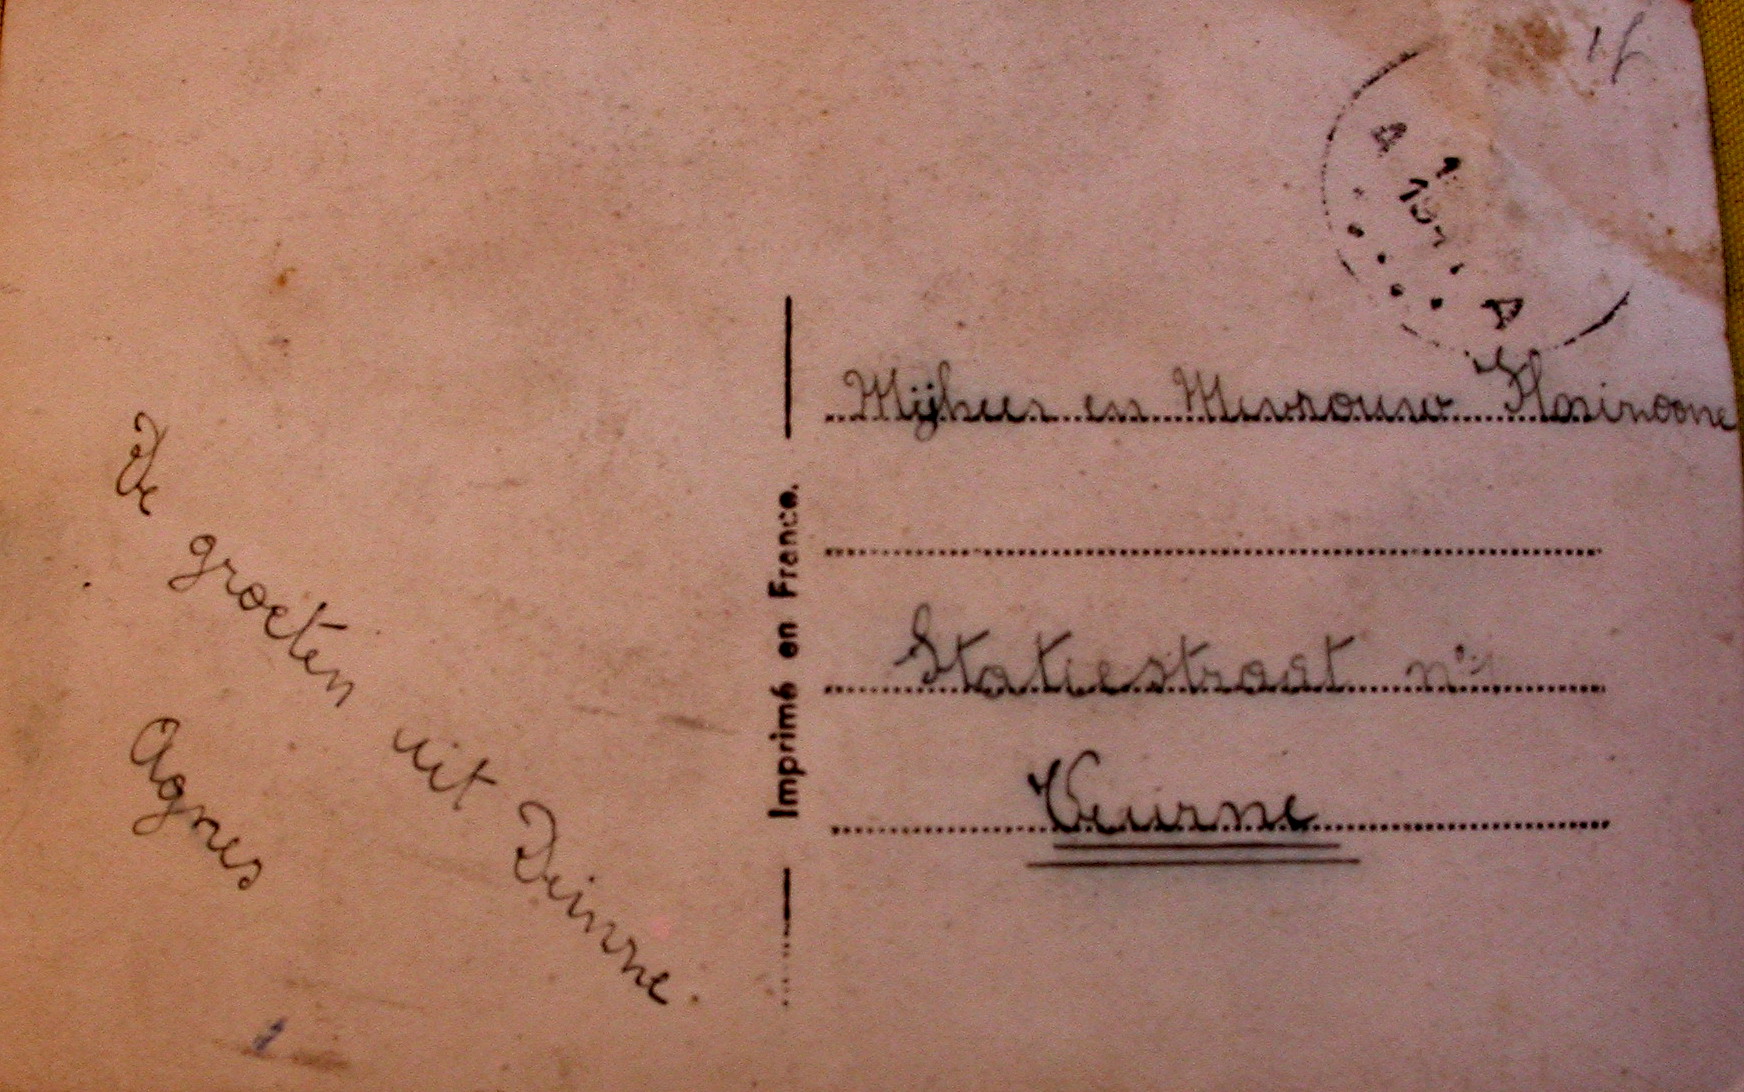 De groeten uit Deinze.
Agnes
Imprimé en France.
Mijheer en Mevrouw
Statiestraat n°
Veurne